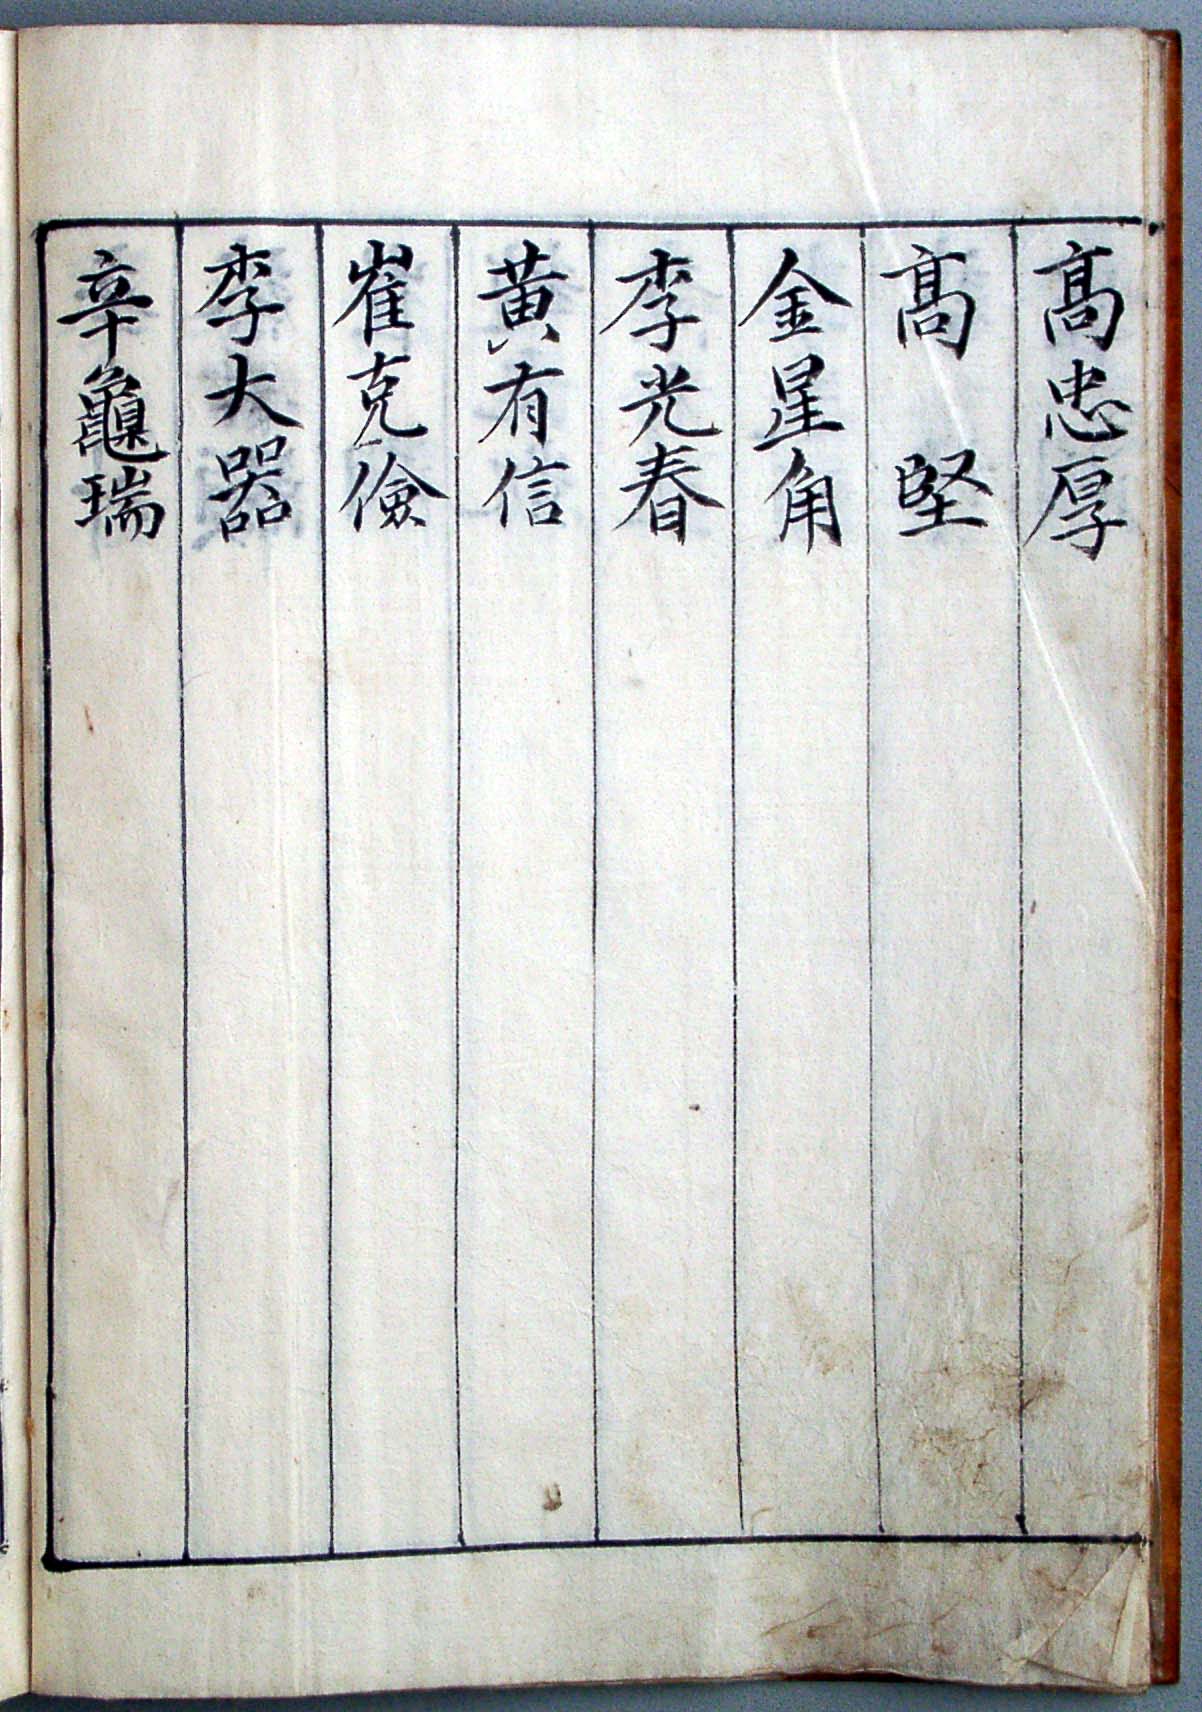 髙忠厚
髙堅
金星角
李光春
黄有信
崔克儉
李大器
辛龜瑞